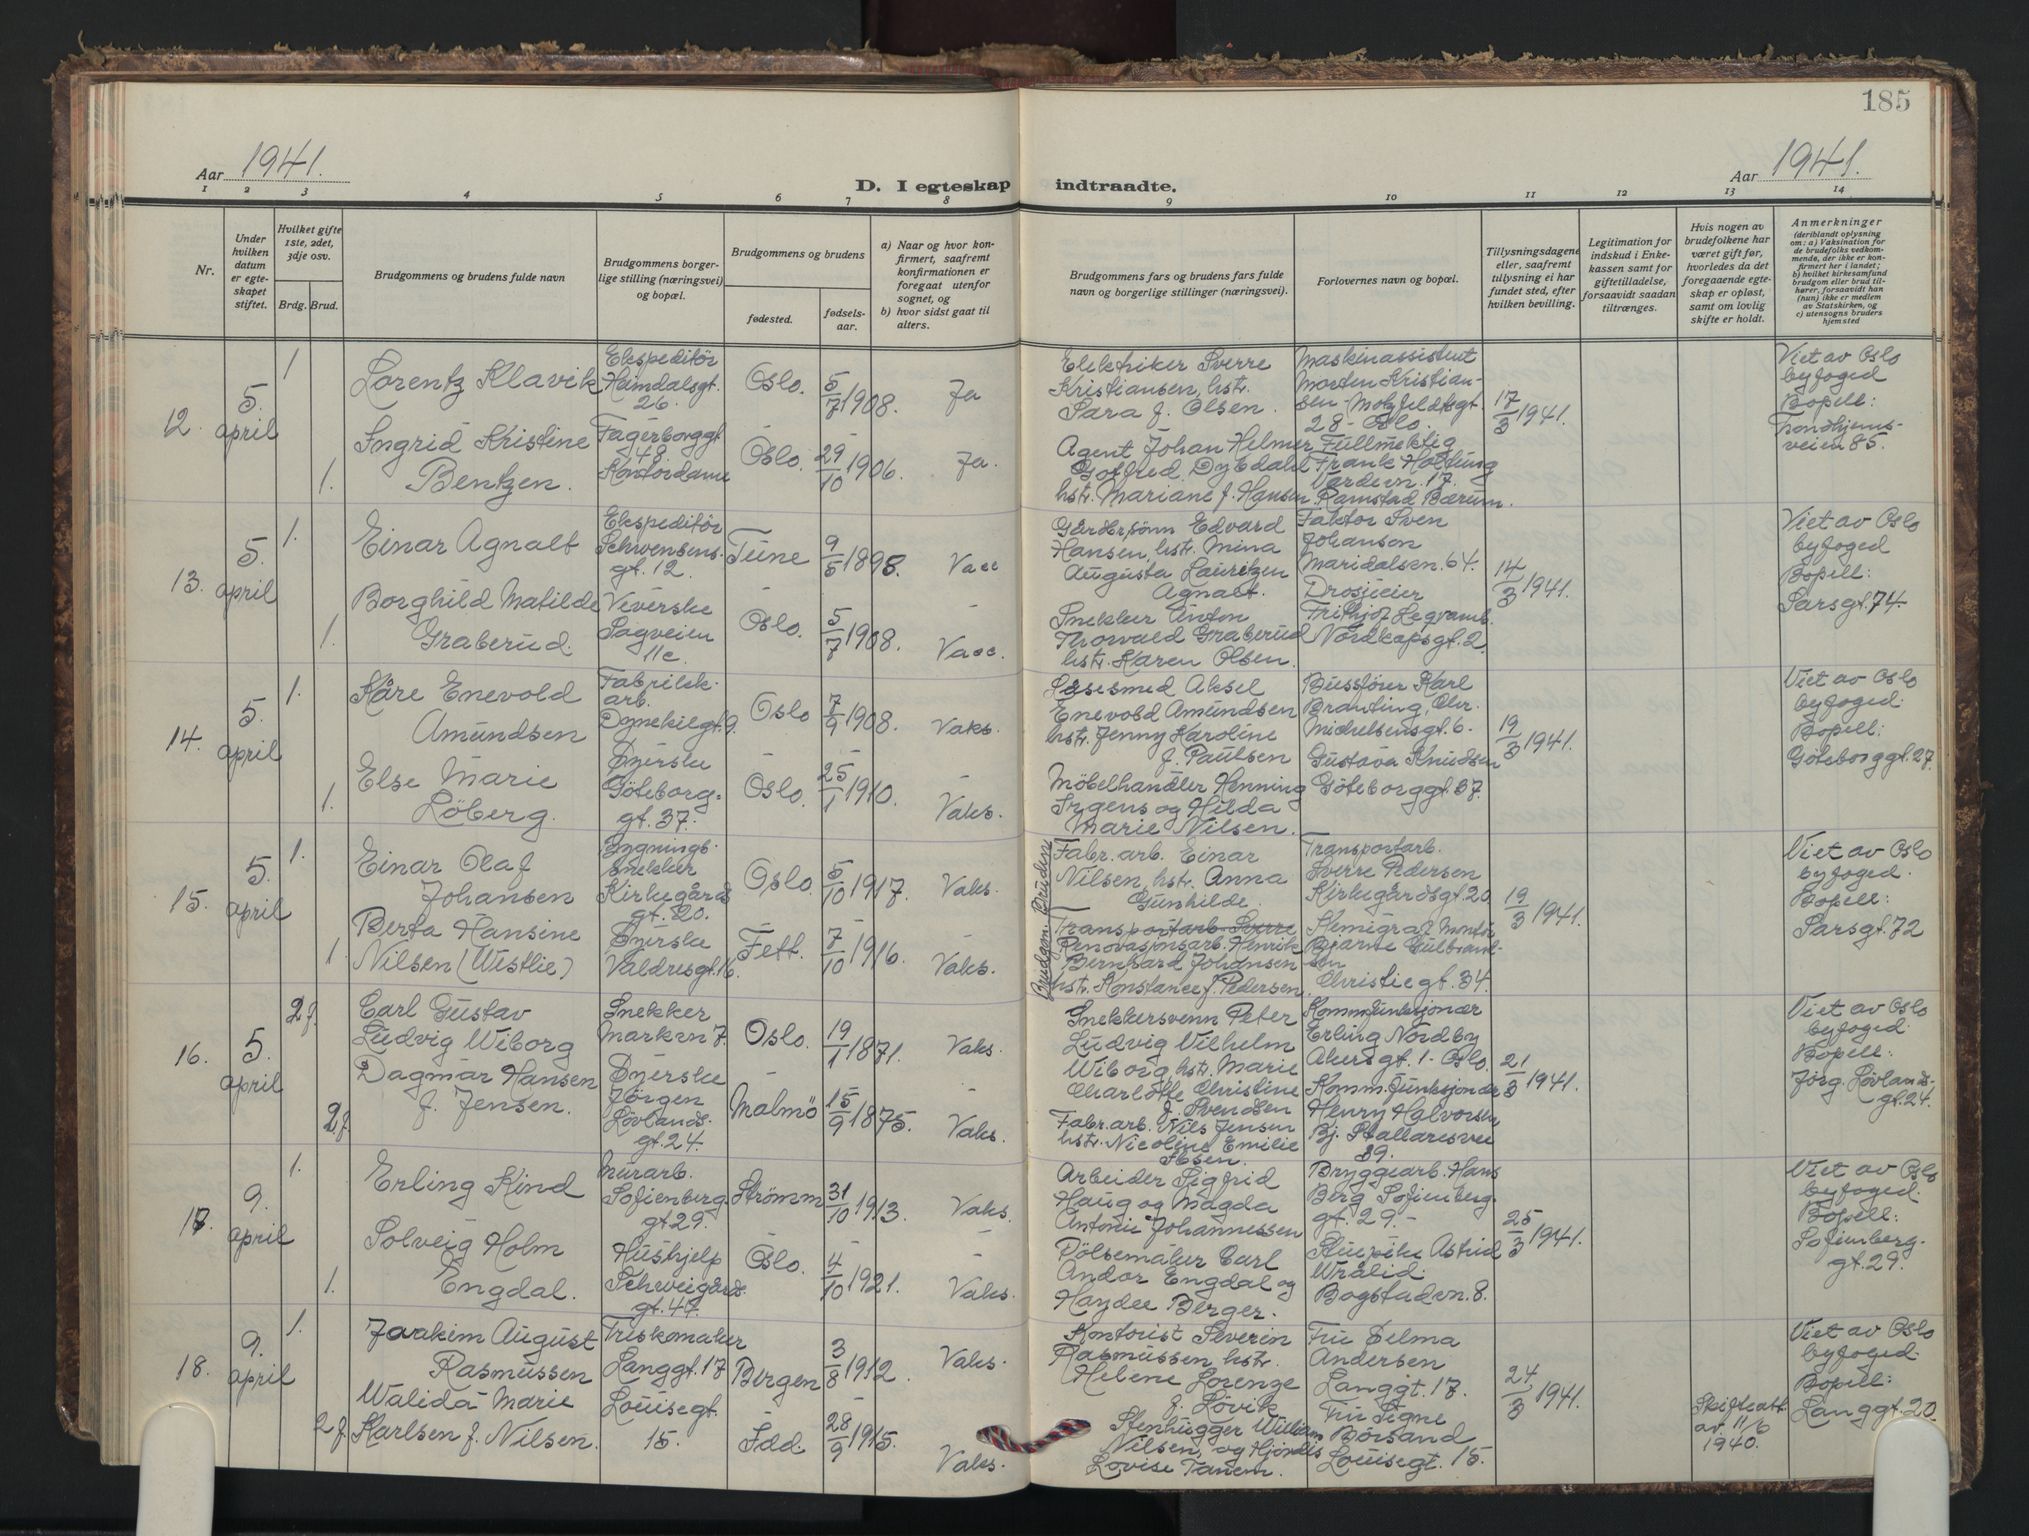 185
Aar 1941.
D. I egteskap indtraadte.
Aar 1941.
1 2 3 4 5 6 7 8 9 10 11 12 13 14
Nr.
Under hvilken datum er egteskapet stiftet.
Hvilket gifte 1ste, 2det, 3dje osv.
Brdg. Brud.
Brudgommens og brudens fulde navn
Brudgommens borgerlige stilling (næringsvei) og bopæl.
Brudgommens og brudens
fødested.
fødselsaar.
a) Naar og hvor konfirmert, saafremt konfirmationen er foregaat utenfor sognet, og
b) hvor sidst gaat til alters.
Brudgommens fars og brudens fars fulde navn og borgerlige stillinger (næringsvei).
Forlovernes navn og bopæl.
Tillysningsdagene eller, saafremt tillysning ei har fundet sted, efter hvilken bevilling.
Legitimation for indskud i Enkekassen samt for giftetilladelse, forsaavidt saadan tiltrænges.
Hvis nogen av brudefolkene har været gift før, hvorledes da det foregaaende egteskap er opløst, samt om lovlig skifte er holdt.
Anmerkninger
(deriblandt oplysning om: a) Vaksination for de brudefolks vedkommende, der ikke er konfirmert her i landet; b) hvilket kirkesamfund brudgom eller brud tilhører, forsaavidt han (hun) ikke er medlem av Statskirken, og c) utensogns bruders hjemsted
12. 5. april
1. Lorentz Klavik
Ekspeditør
Heimdalsgt.
26.
Oslo. 5/7 1908. Ja
Elektriker Sverre
Kristiansen, hstr.
Sara f. Olsen.
Maskinassistent
Morten Kristian-
sen - Motzfeldtsgt.
28 - Oslo.
17/3 1941.
Viet av Oslo
byfoged
Bopell:
Trondhjems-
veien 85.
1. Ingrid Kristine
Bentzen.
Fagerborggt
48.
Kontordame
Oslo. 29/10 1906. Ja.
Agent Johan Helmer
Gotfred Dybdahl
hstr. Mariane f. Hansen.
Fullmektig
Frank Holtung
Vardevn. 17.
Ramstad Bærum.
13. 5. april
1. Einar Agnalt
Ekspeditør
Schwensens-
gt. 12.
Tune 9/5 1898. Vacc
Gårdbr.sønn Edvard
Hansen, hstr. Mina
Augusta Lauritzen
Agnalt.
Faktor Sven
Johanson
Maridalsen. 64.
14/3 1941.
Viet av Oslo
byfoged
Bopell:
Sarsgt. 74.
1. Borghild Matilde
Graberud.
Veverske
Sagveien
11c.
Oslo. 5/7 1908. Vacc.
Snekker Anton
Thorvald Graberud
hstr. Karen Olsen.
Drosjeeier
Frithjof Legvamb.
Nordkapsgt. 2.
14. 5. april
1. Kåre Enevold
Amundsen
Fabrikk-
arb.
Dynekilgt. 9.
Oslo 7/9 1908. Vaks.
Låsesmed Aksel
Enevold Amundsen
hstr. Jenny Karoline
f. Paulsen
Bussfører Karl
Branting, Chr.
Michelsensgt. 6.
19/3 1941.
Viet av Oslo
byfoged:
Bopell:
Göteborggt. 27.
1. Else Marie
Löberg.
Syerske
Göteborg-
gt. 37.
Oslo. 25/1 1910. Vaks.
Möbelhandler Henning
Irgens og Hilda
Marie Nilsen.
Gustava Knudsen
Göteborggt. 37.
15. 5. april
1. Einar Olaf
Johansen
Bygnings-
snekker
Kirkegårds
gt. 20.
Oslo. 5/10 1917. Vaks.
Brudgom: Brudens:
Fabr. arb. Einar
Nilsen, hstr. Anna
Gunhilde.
Transportarb.
Sverre Pedersen
Kirkegårdsgt. 20.
19/3 1941.
Viet av Oslo
byfoged.
Bopell:
Sarsgt. 72
1. Berta Hansine
Nilsen (Westlie)
Syerske
Valdresgt. 16.
Fett. 7/10 1916. Vaks.
Transportarb. Sverre
Renovasjonsarb. Henrik
Bernhard Johansen
hstr. Konstance f. Pedersen.
Kemigraf Montör
Bjarne Gulbrand-
sen
Christiegt. 34.
16. 5. april
2 f. Carl Gustav
Ludvig Wiborg
Snekker
Markvn 7.
Oslo. 19/1 1871. Vaks.
Snekkersvenn Peter
Ludvig Vilhelm
Wiborg, hstr. Marie
Charlotte Christine
f. Svendsen
Komm.funksjonær
Erling Nordby
Akersgt. 1 - Oslo.
21/3 1941.
Viet av Oslo
byfoged.
Bopell:
Jörg. Lövlands-
gt. 24.
2 f. Dagmar Hansen
f. Jensen.
Syerske
Jörgen
Lövlands-
gt. 24.
Malmö 15/9 1875. Vaks.
Fabr. arb. Nils Jensen
hstr. Nicoline Emilie
Ibsen.
Komm. funksjonær
Henry Halvorsen
Bj. Stallaresvei
39.
17. 9. april
1. Erling Kind
Murarb.
Sofienberg
gt. 29.
Strömm 31/10 1913. Vaks.
Arbeider Sigfrid
Haug og Magda
Antonie Johannessen
Bryggearb. Hans
Berg Sofienberg-
gt. 29.-
25/3 1941.
Viet av Oslo
byfoged.
Bopell:
Sofienberg-
gt. 29.
1. Solveig Holm
Engdal.
Hushjelp
Schweigårds
gt. 47.
Oslo. 4/10 1921. Vaks.
Pölsemaker Carl
Andor Engdal og
Haydee Berger.
Stuepike Astrid
Wrålid.
Bogstadvn. 8.
18. 9. april
1. Joakim August
Rasmussen
Triskomaker
Langgt. 17
Bergen 3/8 1912. Vaks.
Kontorist Severin
Rasmussen hstr.
Helene Lorenze
f. Lövik
Fru Selma
Andersen
Langgt. 17.
24/3 1941.
Viet av Oslo
byfoged.
Bopell:
Langgt. 20.
2 f. Walida Marie
Karlsen f. Nilsen.
Louisegt.
15.
Idd. 28/9 1915. Vaks.
Stenhugger William
Nilsen, og Hjördis
Lovise Tanem.
Fru Signe
Börsand
Louisegt. 15.
Skifteatt.
av 11/6
1940.